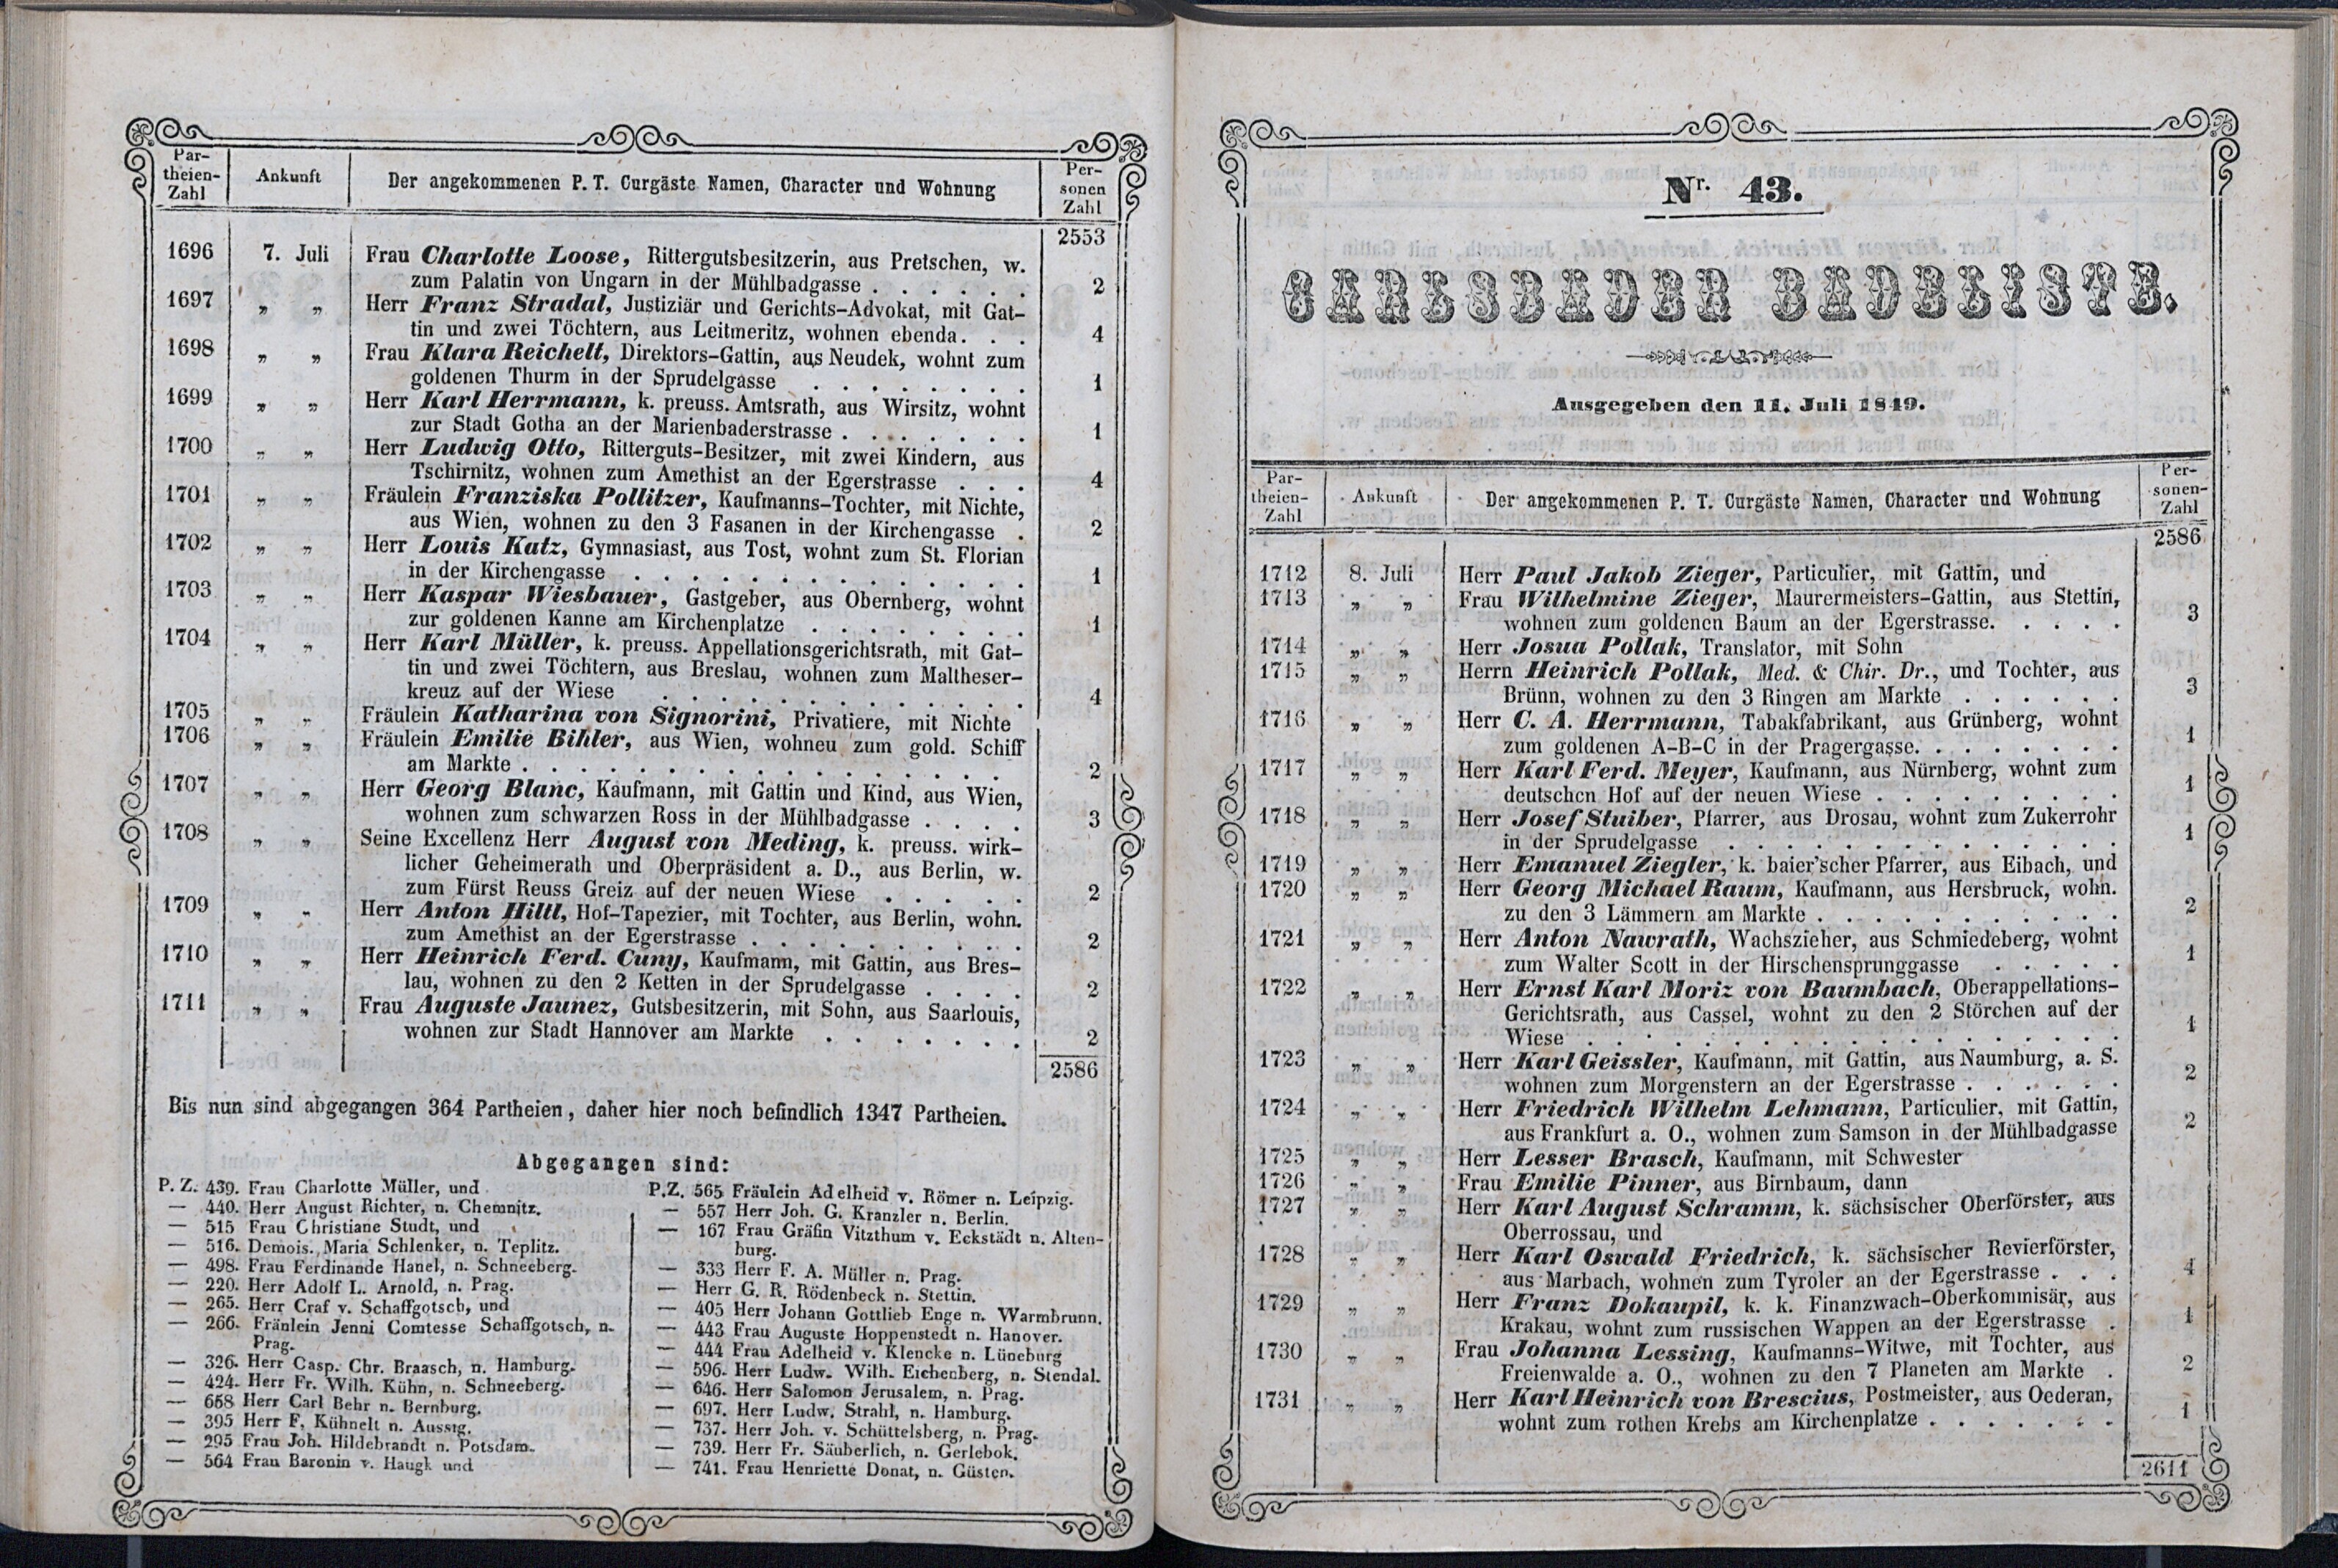 Par-
theien-
Zahl
Ankunft
Der angekommenen P. T. Curgäste Namen, Character und Wohnung
Per-
sonen
Zahl
2553
1696 7. Juli Frau Charlotte Loose, Rittergutsbesitzerin, aus Pretschen, w.
zum Palatin von Ungarn in der Mühlbadgasse . . . . . . 2
1697 „ „ Herr Franz Stradal, Justiziär und Gerichts-Advokat, mit Gat-
tin und zwei Töchtern, aus Leitmeritz, wohnen ebenda. . . 4
1698 „ „ Frau Klara Reichelt, Direktors-Gattin, aus Neudek, wohnt zum
goldenen Thurm in der Sprudelgasse . . . . . . . . 1
1699 „ „ Herr Karl Herrmann, k. preuss. Amtsrath, aus Wirsitz, wohnt
zur Stadt Gotha an der Marienbaderstrasse . . . . . . . 1
1700 „ „ Herr Ludwig Otto, Ritterguts-Besitzer, mit zwei Kindern, aus
Tschirnitz, wohnen zum Amethist an der Egerstrasse . . . 4
1701 „ „ Fräulein Franziska Pollitzer, Kaufmanns-Tochter, mit Nichte,
aus Wien, wohnen zu den 3 Fasanen in der Kirchengasse . 2
1702 „ „ Herr Louis Katz, Gymnasiast, aus Tost, wohnt zum St. Florian
in der Kirchengasse . . . . . . . . . . . . . . 1
1703 „ „ Herr Kaspar Wiesbauer, Gastgeber, aus Obernberg, wohnt
zur goldenen Kanne am Kirchenplatze . . . . . . . . 1
1704 „ „ Herr Karl Müller, k. preuss. Appellationsgerichtsrath, mit Gat-
tin und zwei Töchtern, aus Breslau, wohnen zum Maltheser-
kreuz auf der Wiese . . . . . . . . . . . . . 4
1705 „ „ Fräulein Katharina von Signorini, Privatiere, mit Nichte
1706 „ „ Fräulein Emilie Bihler, aus Wien, wohneu zum gold. Schiff
am Markte . . . . . . . . . . . . . . . . . 2
1707 „ „ Herr Georg Blanc, Kaufmann, mit Gattin und Kind, aus Wien,
wohnen zum schwarzen Ross in der Mühlbadgasse . . . . 3
1708 „ „ Seine Excellenz Herr August von Meding, k. preuss. wirk-
licher Geheimerath und Oberpräsident a. D., aus Berlin, w.
zum Fürst Reuss Greiz auf der neuen Wiese . . . . . 2
1709 „ „ Herr Anton Hiltl, Hof-Tapezier, mit Tochter, aus Berlin, wohn.
zum Amethist an der Egerstrasse . . . . . . . . . . 2
1710 „ „ Herr Heinrich Ferd. Cuny, Kaufmann, mit Gattin, aus Bres-
lau, wohnen zu den 2 Ketten in der Sprudelgasse . . . . 2
1711 „ „ Frau Auguste Jaunez, Gutsbesitzerin, mit Sohn, aus Saarlouis,
wohnen zur Stadt Hannover am Markte . . . . . . . 2
2586
Bis nun sind abgegangen 364 Partheien, daher hier noch befindlich 1347 Partheien.
Abgegangen sind:
P. Z. 439. Frau Charlotte Müller, und
— 440. Herr August Richter, n. Chemnitz.
— 515 Frau Christiane Studt, und
— 516. Demois. Maria Schlenker, n. Teplitz.
— 498. Frau Ferdinande Hanel, n. Schneeberg.
— 220. Herr Adolf L. Arnold, n. Prag.
— 265. Herr Craf v. Schaffgotsch, und
— 266. Fränlein Jenni Comtesse Schaffgotsch, n.
Prag.
— 326. Herr Casp. Chr. Braasch, n. Hamburg.
— 424. Herr Fr. Wilh. Kühn, n. Schneeberg.
— 658 Herr Carl Behr n. Bernburg.
— 395 Herr F. Kühnelt n. Aussig.
— 295 Frau Joh. Hildebrandt n. Potsdam.
— 564 Frau Baronin v. Haugk und
P.Z. 565 Fräulein Adelheid v. Römer n. Leipzig.
— 557 Herr Joh. G. Kranzler n. Berlin.
— 167 Frau Gräfin Vitzthum v. Eckstädt n. Alten-
burg.
— 333 Herr F. A. Müller n. Prag.
— Herr G. R. Rödenbeck n. Stettin.
— 405 Herr Johann Gottlieb Enge n. Warmbrunn.
— 443 Frau Auguste Hoppenstedt n. Hanover.
— 444 Frau Adelheid v. Klencke n. Lüneburg
— 596. Herr Ludw. Wilh. Eichenberg, n. Stendal.
— 646. Herr Salomon Jerusalem, n. Prag.
— 697. Herr Ludw. Strahl, n. Hamburg.
— 737. Herr Joh. v. Schüttelsberg, n. Prag.
— 739. Herr Fr. Säuberlich, n. Gerlebok.
— 741. Frau Henriette Donat, n. Güsten.
Nr. 43.
CARLSBADER BADELISTE.
Ausgegeben den 11. Juli 1849.
Par-
theien-
Zahl
Ankunft
Der angekommenen P. T. Curgäste Namen, Character und Wohnung
Per-
sonen-
Zahl
2586
1712 8. Juli Herr Paul Jakob Zieger, Particulier, mit Gattin, und
1713 „ „ Frau Wilhelmine Zieger, Maurermeisters-Gattin, aus Stettin,
wohnen zum goldenen Baum an der Egerstrasse. . . . . 3
1714 „ „ Herr Josua Pollak, Translator, mit Sohn
1715 „ „ Herrn Heinrich Pollak, Med. & Chir. Dr., und Tochter, aus
Brünn, wohnen zu den 3 Ringen am Markte . . . . . . 3
1716 „ „ Herr C. A. Herrmann, Tabakfabrikant, aus Grünberg, wohnt
zum goldenen A-B-C in der Pragergasse. . . . . . . . 1
1717 „ „ Herr Karl Ferd. Meyer, Kaufmann, aus Nürnberg, wohnt zum
deutschen Hof auf der neuen Wiese . . . . . . . . . 1
1718 „ „ Herr Josef Stuiber, Pfarrer, aus Drosau, wohnt zum Zukerrohr
in der Sprudelgasse . . . . . . . . . . . . . . 1
1719 „ „ Herr Emanuel Ziegler, k. baier'scher Pfarrer, aus Eibach, und
1720 „ „ Herr Georg Michael Raum, Kaufmann, aus Hersbruck, wohn.
zu den 3 Lämmern am Markte . . . . . . . . . . . 2
1721 „ „ Herr Anton Nawrath, Wachszieher, aus Schmiedeberg, wohnt
zum Walter Scott in der Hirschensprunggasse . . . . . 1
1722 „ „ Herr Ernst Karl Moriz von Baumbach, Oberappellations-
Gerichtsrath, aus Cassel, wohnt zu den 2 Störchen auf der
Wiese . . . . . . . . . . . . . . . . . . 1
1723 „ „ Herr Karl Geissler, Kaufmann, mit Gattin, aus Naumburg, a. S.
wohnen zum Morgenstern an der Egerstrasse . . . . . . 2
1724 „ „ Herr Friedrich Wilhelm Lehmann, Particulier, mit Gattin,
aus Frankfurt a. O., wohnen zum Samson in der Mühlbadgasse 2
1725 „ „ Herr Lesser Brasch, Kaufmann, mit Schwester
1726 „ „ Frau Emilie Pinner, aus Birnbaum, dann
1727 „ „ Herr Karl August Schramm, k. sächsischer Oberförster, aus
Oberrossau, und
1728 „ „ Herr Karl Oswald Friedrich, k. sächsischer Revierförster,
aus Marbach, wohnen zum Tyroler an der Egerstrasse . . . 4
1729 „ „ Herr Franz Dokaupil, k. k. Finanzwach-Oberkommisär, aus
Krakau, wohnt zum russischen Wappen an der Egerstrasse . 1
1730 „ „ Frau Johanna Lessing, Kaufmanns-Witwe, mit Tochter, aus
Freienwalde a. O., wohnen zu den 7 Planeten am Markte . 2
1731 „ „ Herr Karl Heinrich von Brescius, Postmeister, aus Oederan,
wohnt zum rothen Krebs am Kirchenplatze . . . . . . . 1
2611